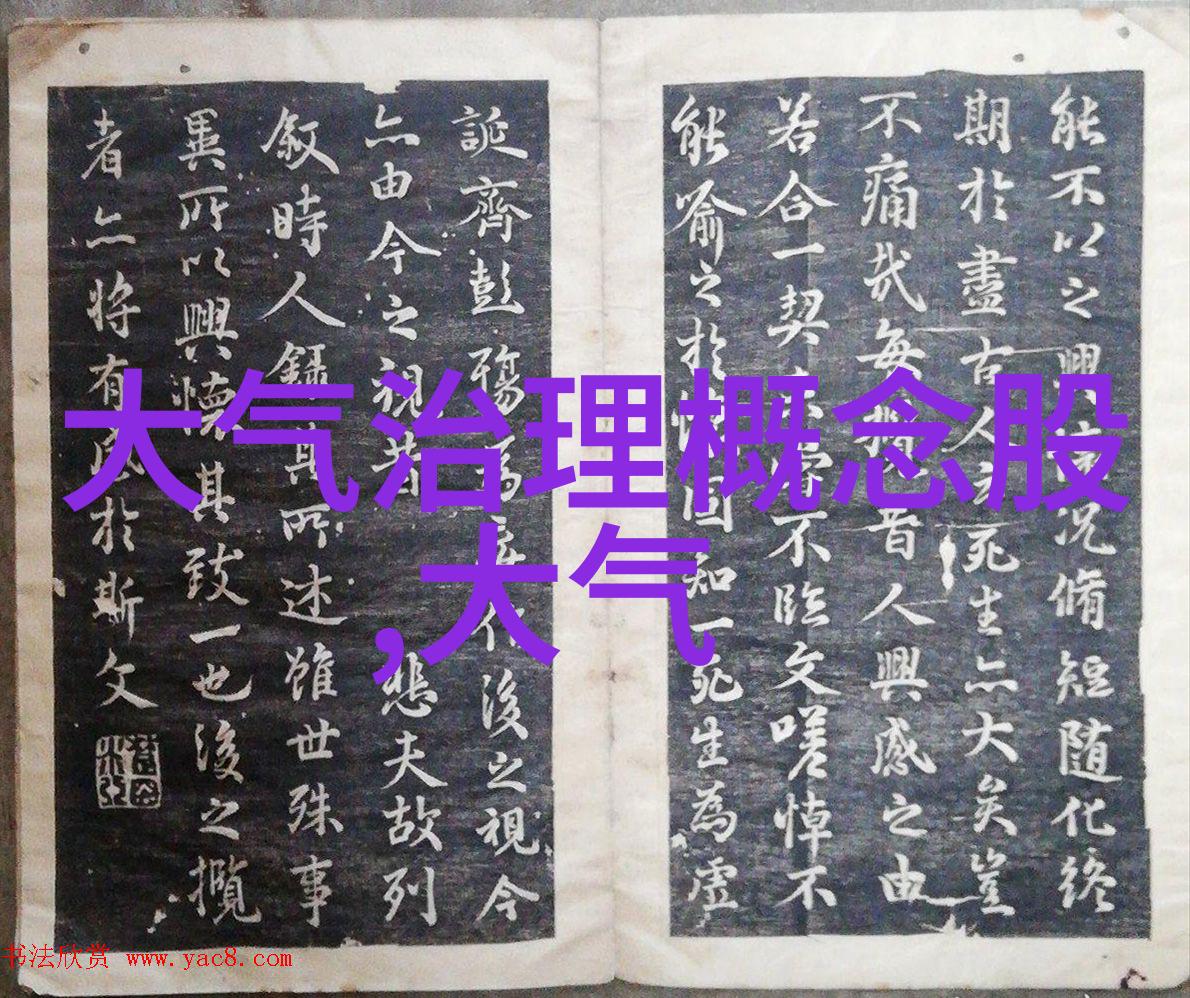 能不以之興況脩短随化终
期於盡古人云死生亦大矣豈
不痛哉每攬昔人興感之由
若合一契未嘗不臨文嗟悼不
能喻之於懷固知一死生為虛
誕齊彭殤為妄作後之視今
亦由今之視昔悲夫故列
敘時人錄其所述雖世殊事
異所以興懷其致一也後之攬
者亦將有感於斯文
大气治理概念股
,大气
书法欣赏 www.yac8.com